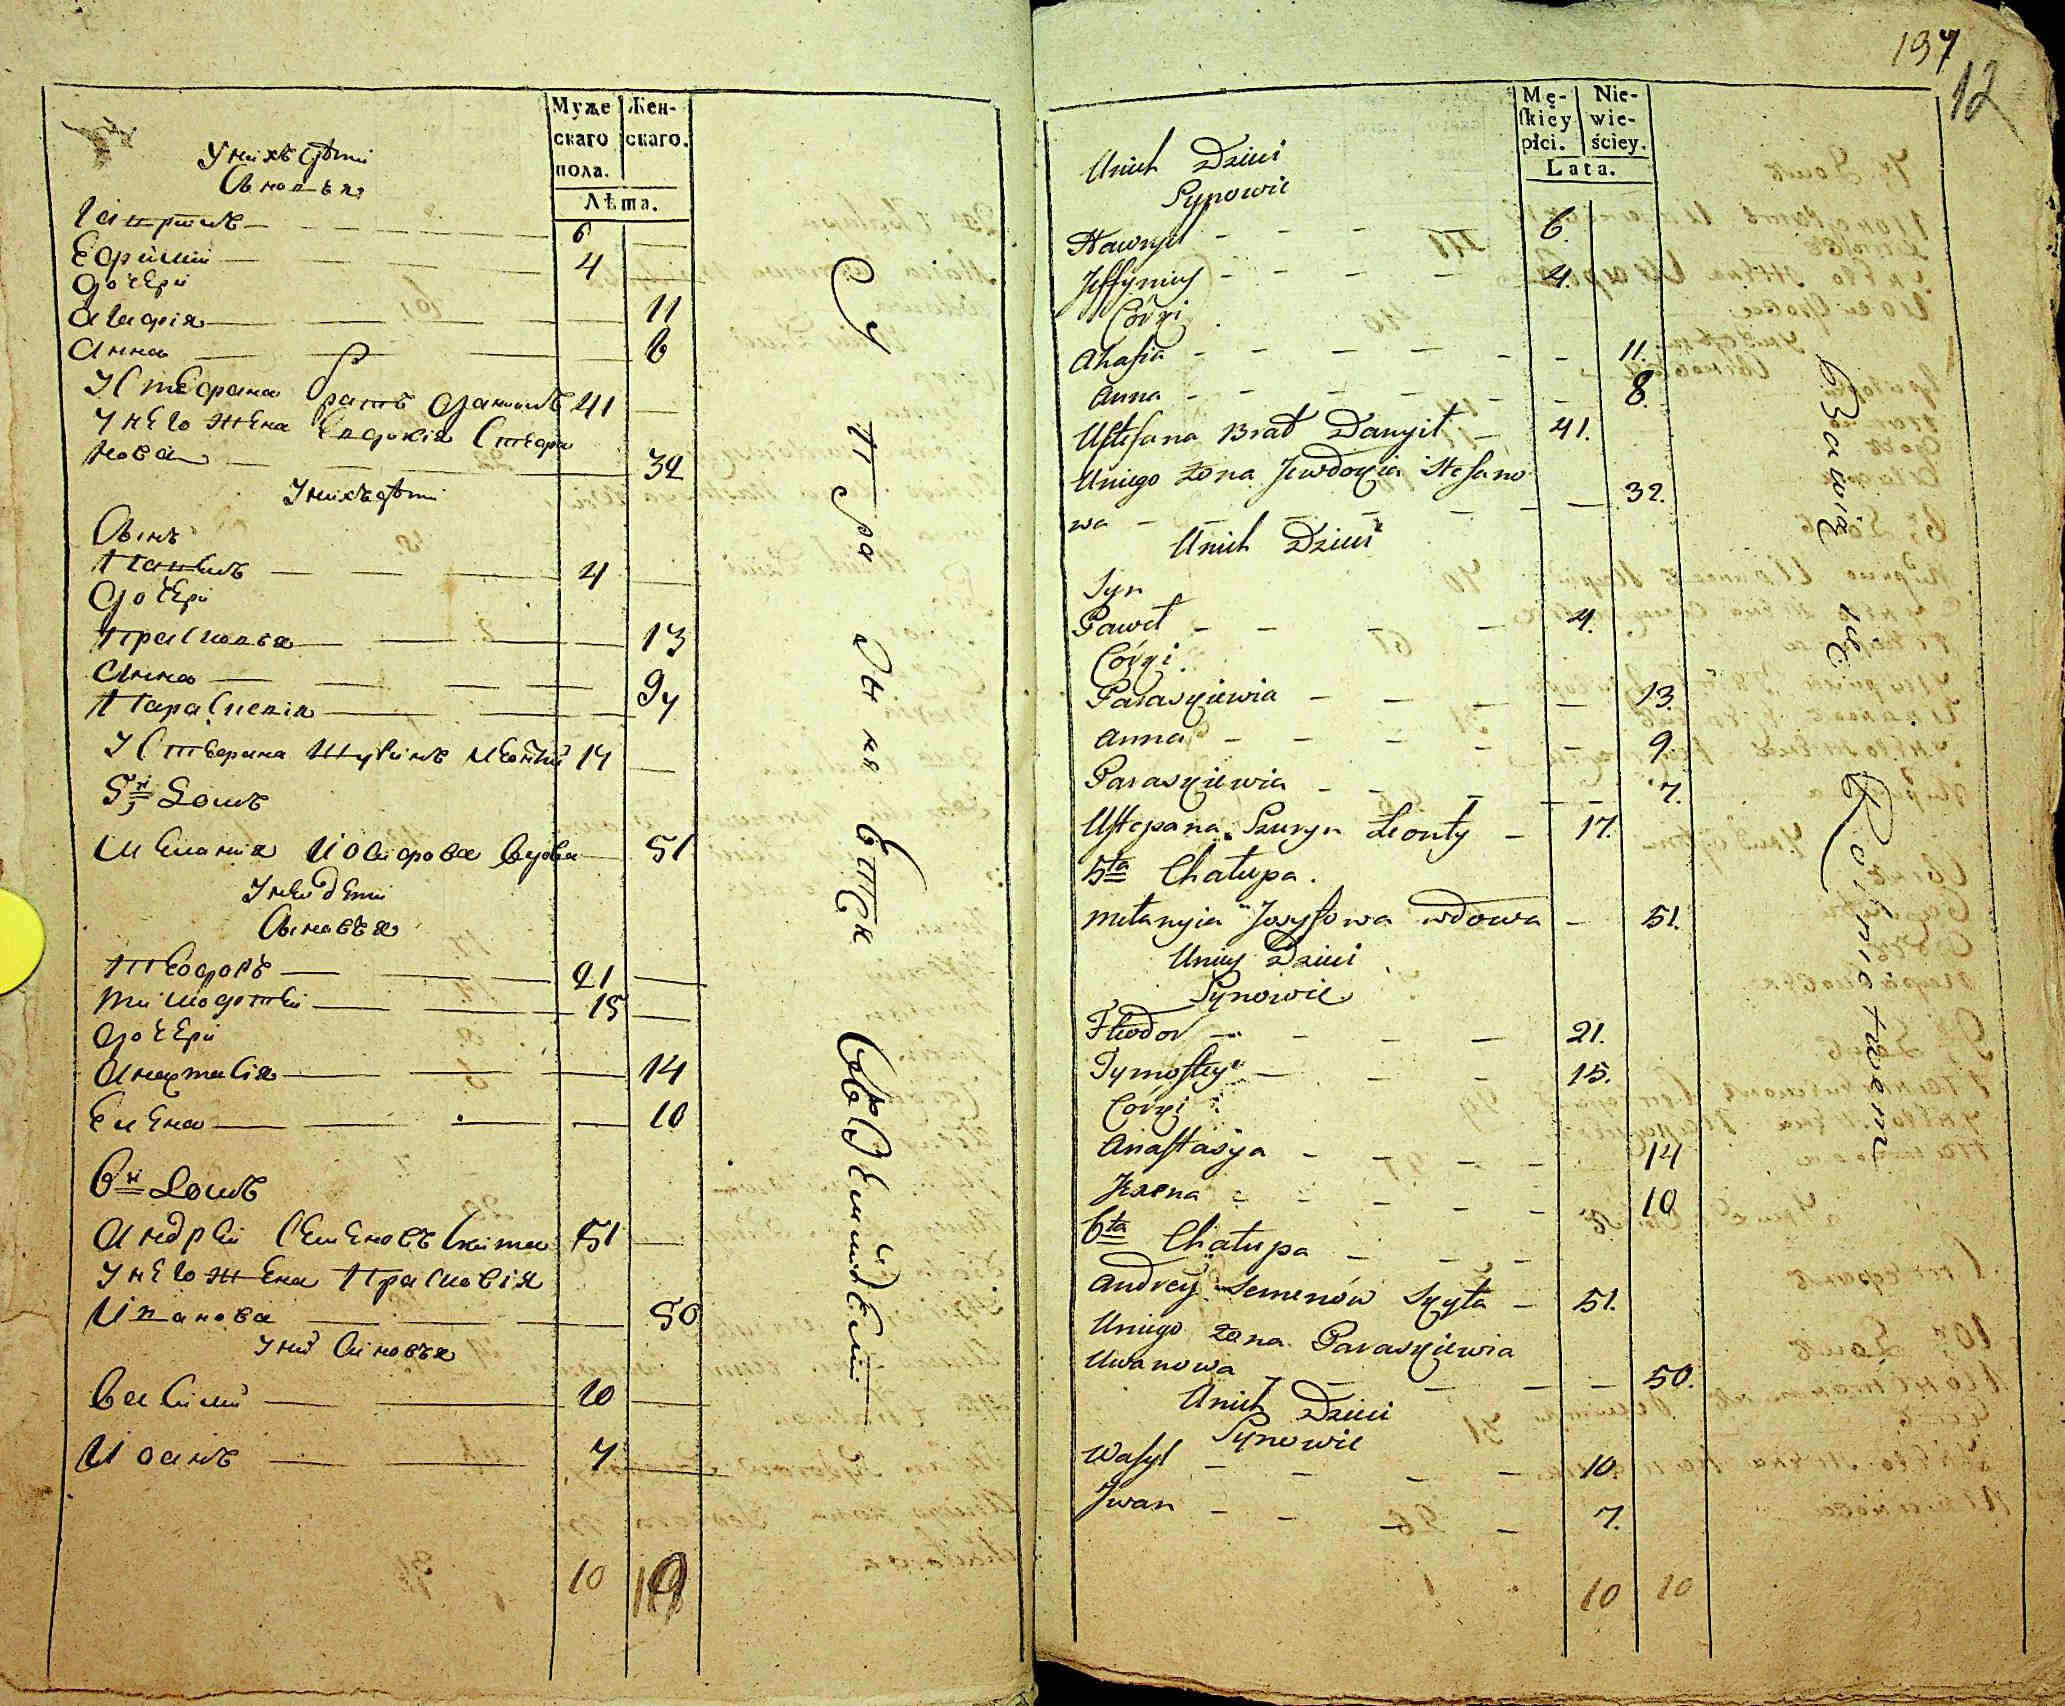 Муже
скаго
пола.
Жен-
скаго.
Лѣта.
У нихъ дѣти
Сыновья
Гаврилъ 6
Ефимий 4
дочери
Агафія 11
Анна 8
У Стефана братъ Данилъ 41
У него жена Евдокія Стефа
нова 32
У нихъ дѣти
Сынъ
Павелъ 4
дочери
Прасковья 13
Анна 9
Параскевія 7
У Стефана Шуринъ Леонтий 17
5й Домъ
Меланія Иосифова вдова 51
У ней дѣти
Сыновья
Теодоръ 21
Тимофтей 15
дочери
Анастасія 14
Елена 10
6й Домъ
Андрей Семеновъ Скита 51
У него жена Прасковія
Иванова 50
У них Сыновья
Василий 10
Иоанъ 7
10
Упражняется Земледелием
197
12
Mę-
skiey
płci.
Nie-
wie-
ściey.
Lata.
Unich Dzieci
Synowie
Hawrył 6.
Jeffymiy 4.
Córki
Ahafia 11.
Anna 8.
U Stefana Brat Danyił 41.
Uniego żona Jewdokia Stefano
wa 32.
Unich Dzieci
Syn
Paweł 4.
Córki
Paraskiewia 13.
Anna 9.
Paraskiewia 7.
U Stepana Szuryn Leonty 17.
5ta Chałupa.
Mełanyia Jozyfowa wdowa 51.
Uniey Dzieci
Synowie
Fteodor 21.
Tymoftey 15.
Córki
Anastasya 14
Jełena 10
6ta Chałupa
Andrey Semenów Skyta 51.
Uniego żona Paraskiewia
Iwanowa 50.
Unich Dzieci
Synowie
Wasyl 10.
Iwan 7.
10 10
Bawią się Rolnictwem